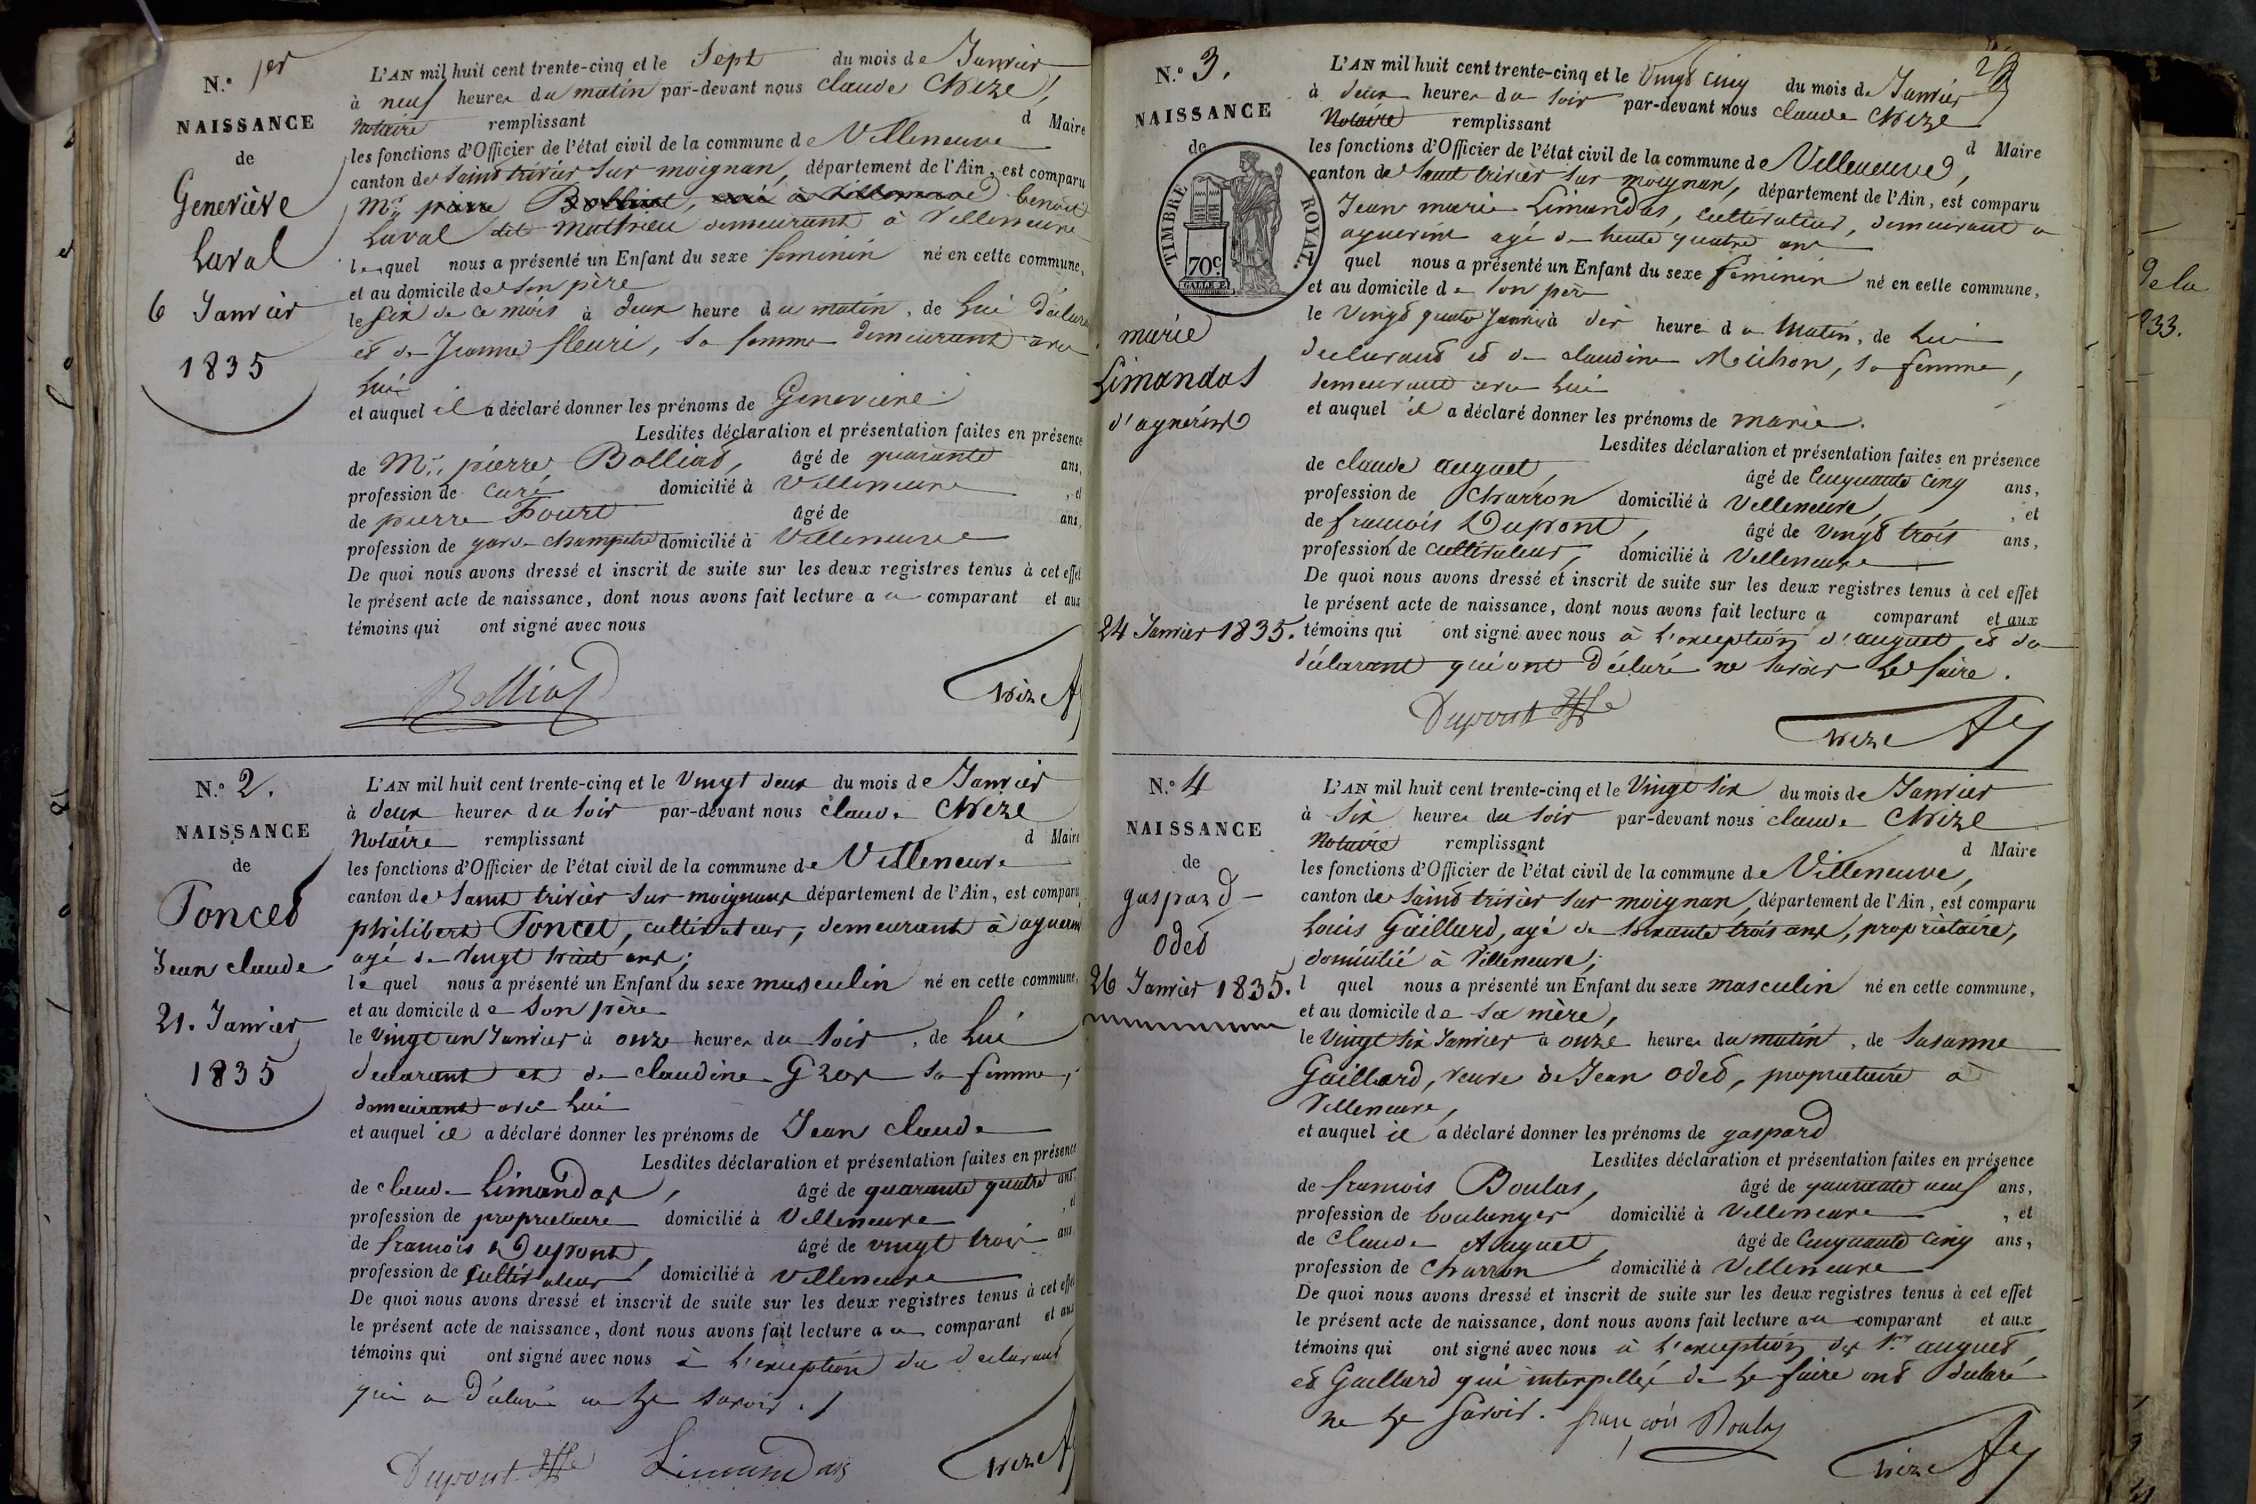 N.° 1er
NAISSANCE
de
Geneviève
Laval
6 Janvier
1835
L'AN mil huit cent trente-cinq et le Sept du mois de Janvier
à neuf heures du matin par-devant nous Claude Chize,
Notaire remplissant d Maire
les fonctions d'Officier de l'état civil de la commune de Villeneuve
canton de Saint trivier sur moignan, département de l'Ain, est comparu
Mr. pierre Bolliat, curé à Villeneuve benoit
Laval dit Mathieu demeurant à Villeneuve
lequel nous a présenté un Enfant du sexe feminin né en cette commune,
et au domicile de son père
le six de ce mois à deux heure du matin, de Lui Déclarant
et de Jeanne fleuri, sa femme demeurant avec
Lui
et auquel il a déclaré donner les prénoms de Genevieve.
Lesdites déclaration et présentation faites en présence
de Mr. pierre Bolliat, âgé de quarante ans,
profession de curé domicilié à Villeneuve, et
de pierre Fourt âgé de ans,
profession de garde champetre domicilié à Villeneuve
De quoi nous avons dressé et inscrit de suite sur les deux registres tenus à cet effet
le présent acte de naissance, dont nous avons fait lecture au comparant et aux
témoins qui ont signé avec nous
Bolliat Chize
N.° 2.
NAISSANCE
de
Poncet
Jean claude
21. Janvier
1835
L'AN mil huit cent trente-cinq et le Vingt deux du mois de Janvier
à deux heures du soir par-devant nous claude Chize
Notaire remplissant d Maire
les fonctions d'Officier de l'état civil de la commune de Villeneuve
canton de Saint trivier sur moignans département de l'Ain, est comparu
philibert Poncet, cultivateur, demeurant à aguerins
agé de Vingt huit ans;
lequel nous a présenté un Enfant du sexe masculin né en cette commune,
et au domicile de son père
le vingt un Janvier à onze heures du soir, de Lui
declarant et de claudine Gros sa femme,
demeurant avec Lui
et auquel il a déclaré donner les prénoms de Jean claude
Lesdites déclaration et présentation faites en présence
de claude Limandas, âgé de quarante quatre ans,
profession de proprietaire domicilié à Villeneuve, et
de francois Dupont, âgé de vingt trois ans
profession de cultivateur domicilié à Villeneuve
De quoi nous avons dressé et inscrit de suite sur les deux registres tenus à cet effet
le présent acte de naissance, dont nous avons fait lecture au comparant et aux
témoins qui ont signé avec nous à L'exception du declarant
qui a déclaré ne le savoir./
Dupont Limandas Chize
N.° 3.
NAISSANCE
de
TIMBRE ROYAL.
70c
marie
Limandas
d'aguerins
24 Janvier 1835.
L'AN mil huit cent trente-cinq et le Vingt cinq du mois de Janvier
à deux heures du soir par-devant nous claude Chize
Notaire remplissant d Maire
les fonctions d'Officier de l'état civil de la commune de Villeneuve,
canton de Saint trivier sur moignan, département de l'Ain, est comparu
Jean marie Limandas, cultivateur, demeurant a
aguerins agé de trente quatre ans
quel nous a présenté un Enfant du sexe féminin né en cette commune,
et au domicile de son père
le Vingt quatre Janvier à dix heure du Matin, de Lui
declarant et de claudine Michon, sa femme,
demeurant avec Lui
et auquel il a déclaré donner les prénoms de marie.
Lesdites déclaration et présentation faites en présence
de claude auguet, âgé de Cinquante cinq ans,
profession de Charron domicilié à Villeneuve, et
de francois Dupont, âgé de vingt trois ans,
profession de cultivateur, domicilié à Villeneuve
De quoi nous avons dressé et inscrit de suite sur les deux registres tenus à cet effet
le présent acte de naissance, dont nous avons fait lecture a comparant et aux
témoins qui ont signé avec nous à L'exception d'auguet et du
déclarant qui ont Déclaré ne savoir Le faire.
Dupont Chize
N.° 4
NAISSANCE
de
gaspard
Odet
26 Janvier 1835.
L'AN mil huit cent trente-cinq et le Vingt six du mois de Janvier
à six heures du soir par-devant nous claude Chize
Notaire remplissant d Maire
les fonctions d'Officier de l'état civil de la commune de Villeneuve,
canton de Saint trivier sur moignan, département de l'Ain, est comparu
Louis Gaillard, agé de soixante trois ans, propriètaire,
domicilié à Villeneuve;
l quel nous a présenté un Enfant du sexe masculin né en cette commune,
et au domicile de sa mère,
le Vingt six Janvier à onze heures du matin, de Susanne
Gaillard, veuve de Jean Odet, proprietaire à
Villeneuve,
et auquel il a déclaré donner les prénoms de gaspard
Lesdites déclaration et présentation faites en présence
de francois Boulas, âgé de quarante neuf ans,
profession de boulanger domicilié à Villeneuve, et
de Claude Auguet, âgé de Cinquante cinq ans,
profession de Charron domicilié à Villeneuve
De quoi nous avons dressé et inscrit de suite sur les deux registres tenus à cet effet
le présent acte de naissance, dont nous avons fait lecture au comparant et aux
témoins qui ont signé avec nous à L'exception des Srs auguet
et Gaillard qui interpellés de le faire ont déclaré
ne le savoir. françois Boulas
Chize
de la
33.